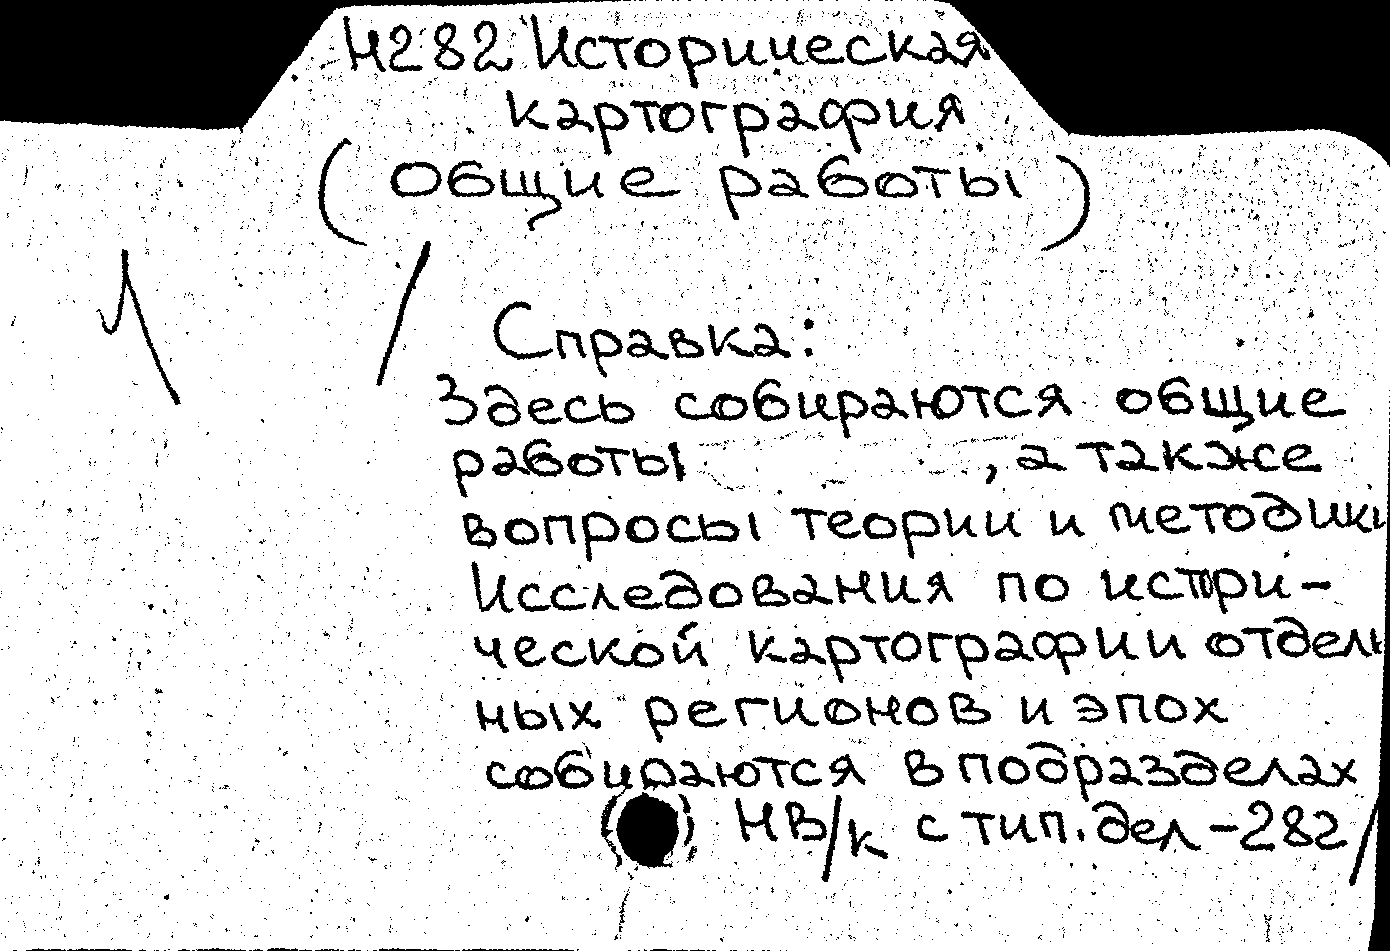 Н282 Историческая
картография
(общие работы)
Справка:
Здесь собираются общие
работы , а также
вопросы теории и методики
Исследования по истри-
ческой картографии отдель
ных регионов и эпох
собираются в подразделах
НВ/к с тип. дел -282/